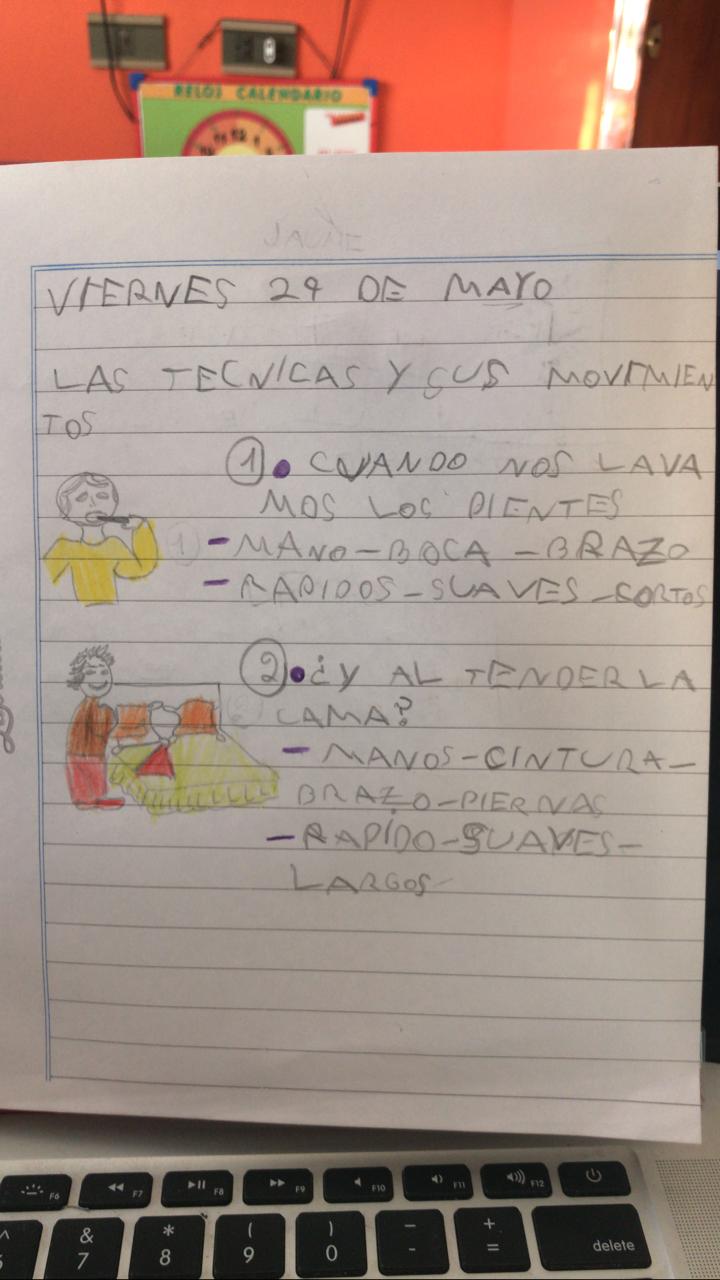 RELOJ CALENDARIO
JAUME
VIERNES 29 DE MAYO
LAS TECNICAS Y SUS MOVIMIEN
TOS
1 • CUANDO NOS LAVA
MOS LOS DIENTES
- MANO - BOCA - BRAZO
- RAPIDOS - SUAVES - CORTOS
2 • ¿Y AL TENDER LA
CAMA?
- MANOS - CINTURA -
BRAZO - PIERNAS
- RAPÍDO - SUAVES -
LARGOS
F6 F7 F8 F9 F10 F11 F12
& * ( ) - +
7 8 9 0 - = delete